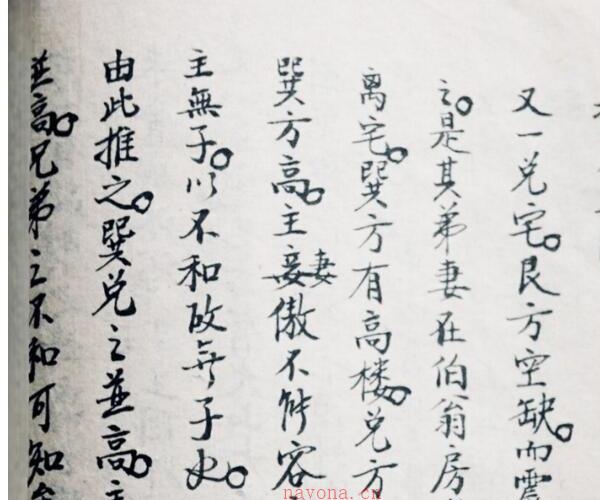 又一兑宅。艮方空缺。而震
之。是其弟妻在伯翁房
离宅。巽方有高楼。兑方
巽方高。主妾妻傲不能容
主無子。以不和故無子也。
由此推之。巽兑之並高。主
並高。兄弟之不和可知
nayona.cn